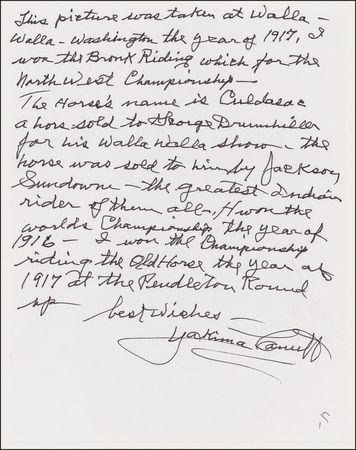 This picture was taken at Walla -
Walla - Washington the year of 1917, I
won the Bronk Riding which for the
North West Championship —
The Horse's name is Culdasac
a hors sold to George Drumhiller
for his Walla Walla show - the
horse was sold to him by Jackson
Sundown - the greatest Indian
rider of them all. H won the
worlds Championship the year of
1916 - I won the Championship
riding the Old Horse the year of
1917 at the Pendleton Round
up — best Wishes —
Yakima Canutt